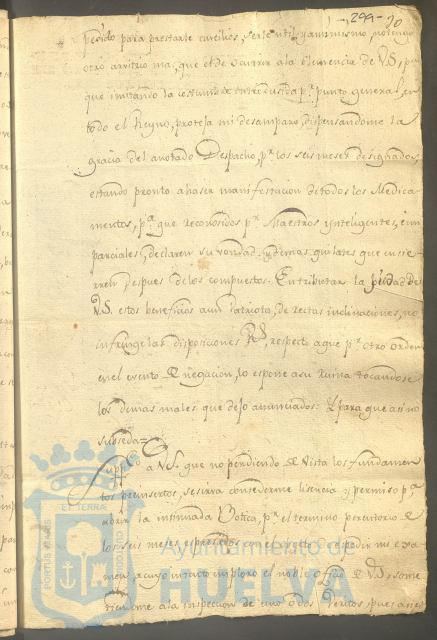 299-30
pedido para prestarle auxilios, serle util, y asimismo no tengo
otro arvitrio mas, que el de ocurrir a la clemencia de V.S., pa
que imitando la costumbre introducida pr. punto general, en
todo el Reyno, proteja mi desamparo, dispensandome la
gracia del anotado Despacho, pr. los seis meses designados,
estando pronto a haser manifestacion de todos los Medica
mentos, pa. que reconosidos pr. Maestros ynteligentes, é im
parciales, declaren su vondad, y demas quilates que ensie
rren despues de los compuestos. En tributar la piedad de
V.S. estos beneficios a un Patriota, de rectas inclinaciones, no
infringe las disposiciones Rs., respecto a que pr. otro orden
en el evento de negacion, lo espone a su Ruina tocandose
los demas males que dejo anunciados: Y para que asi no
subseda=
Suppco. a V.S. que no perdiendo de vista los fundamen
tos preinsertos, se sirva consederme lisencia y permiso pa.
abrir la insinuada Botica, pr. el termino perentorio de
los seis meses espresados con el objeto de pedir mi exa
men, a cuyo intento imploro el noble Ofisio de V.S., some
tiendome a la inspeccion de uno o dos Peritos, pues a je
EL TERRA
PORTUS MARIS
CUSTODIO
Ayuntamiento de
HUELVA